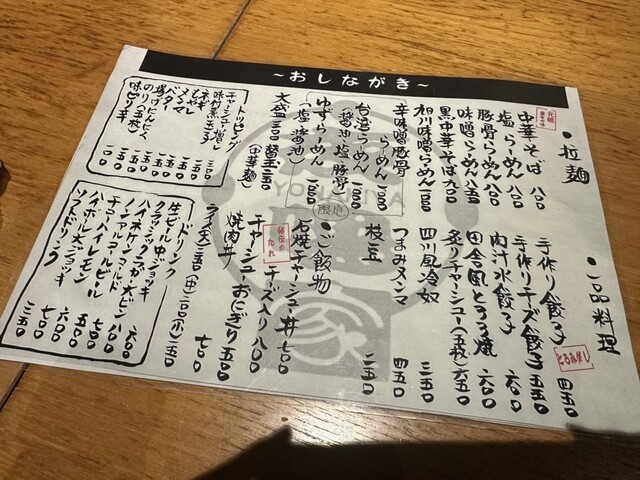 ～おしながき～
●拉麺
中華そば 八〇〇
塩らーめん 八〇〇
豚骨らーめん 八〇〇
味噌らーめん 九〇〇
黒中華そば 九〇〇
相川味噌らーめん 一〇〇〇
辛味噌豚骨
らーめん 1000
台湾らーめん 1000
(醤油 塩 豚骨)
限定
ゆずらーめん 1000
(塩 醤油)
大盛 二〇〇 替玉 二五〇
(中華麺)
トッピング
チャーシュー増し 三五〇
味付煮玉子
ネギ
もやし
メンマ
バター
揚げにんにく
のり(五枚)
味切り辛
●一品料理
手作り餃子 四五〇
手作りチーズ餃子 五五〇
肉汁水餃子 六〇〇
田舎風とろろ焼 六〇〇
炙りチャーシュー(五枚) 六五〇
四川風冷奴 三五〇
つまみメンマ 四五〇
枝豆 二五〇
●ご飯物
石焼チャーシュー丼 七〇〇
チーズ入り 八〇〇
秘伝のたれ
チャーシューおにぎり 五〇〇
焼肉丼 七〇〇
ライス(大) 二五〇 (中) 二〇〇 (小) 一五〇
ドリンク
生ビール中ジョッキ 六〇〇
クラシックラガー大ビン 八〇〇
ハイボール
ノンアルコールビール
チューハイレモン
ハイボール大ジョッキ 七〇〇
ソフトドリンク 二五〇